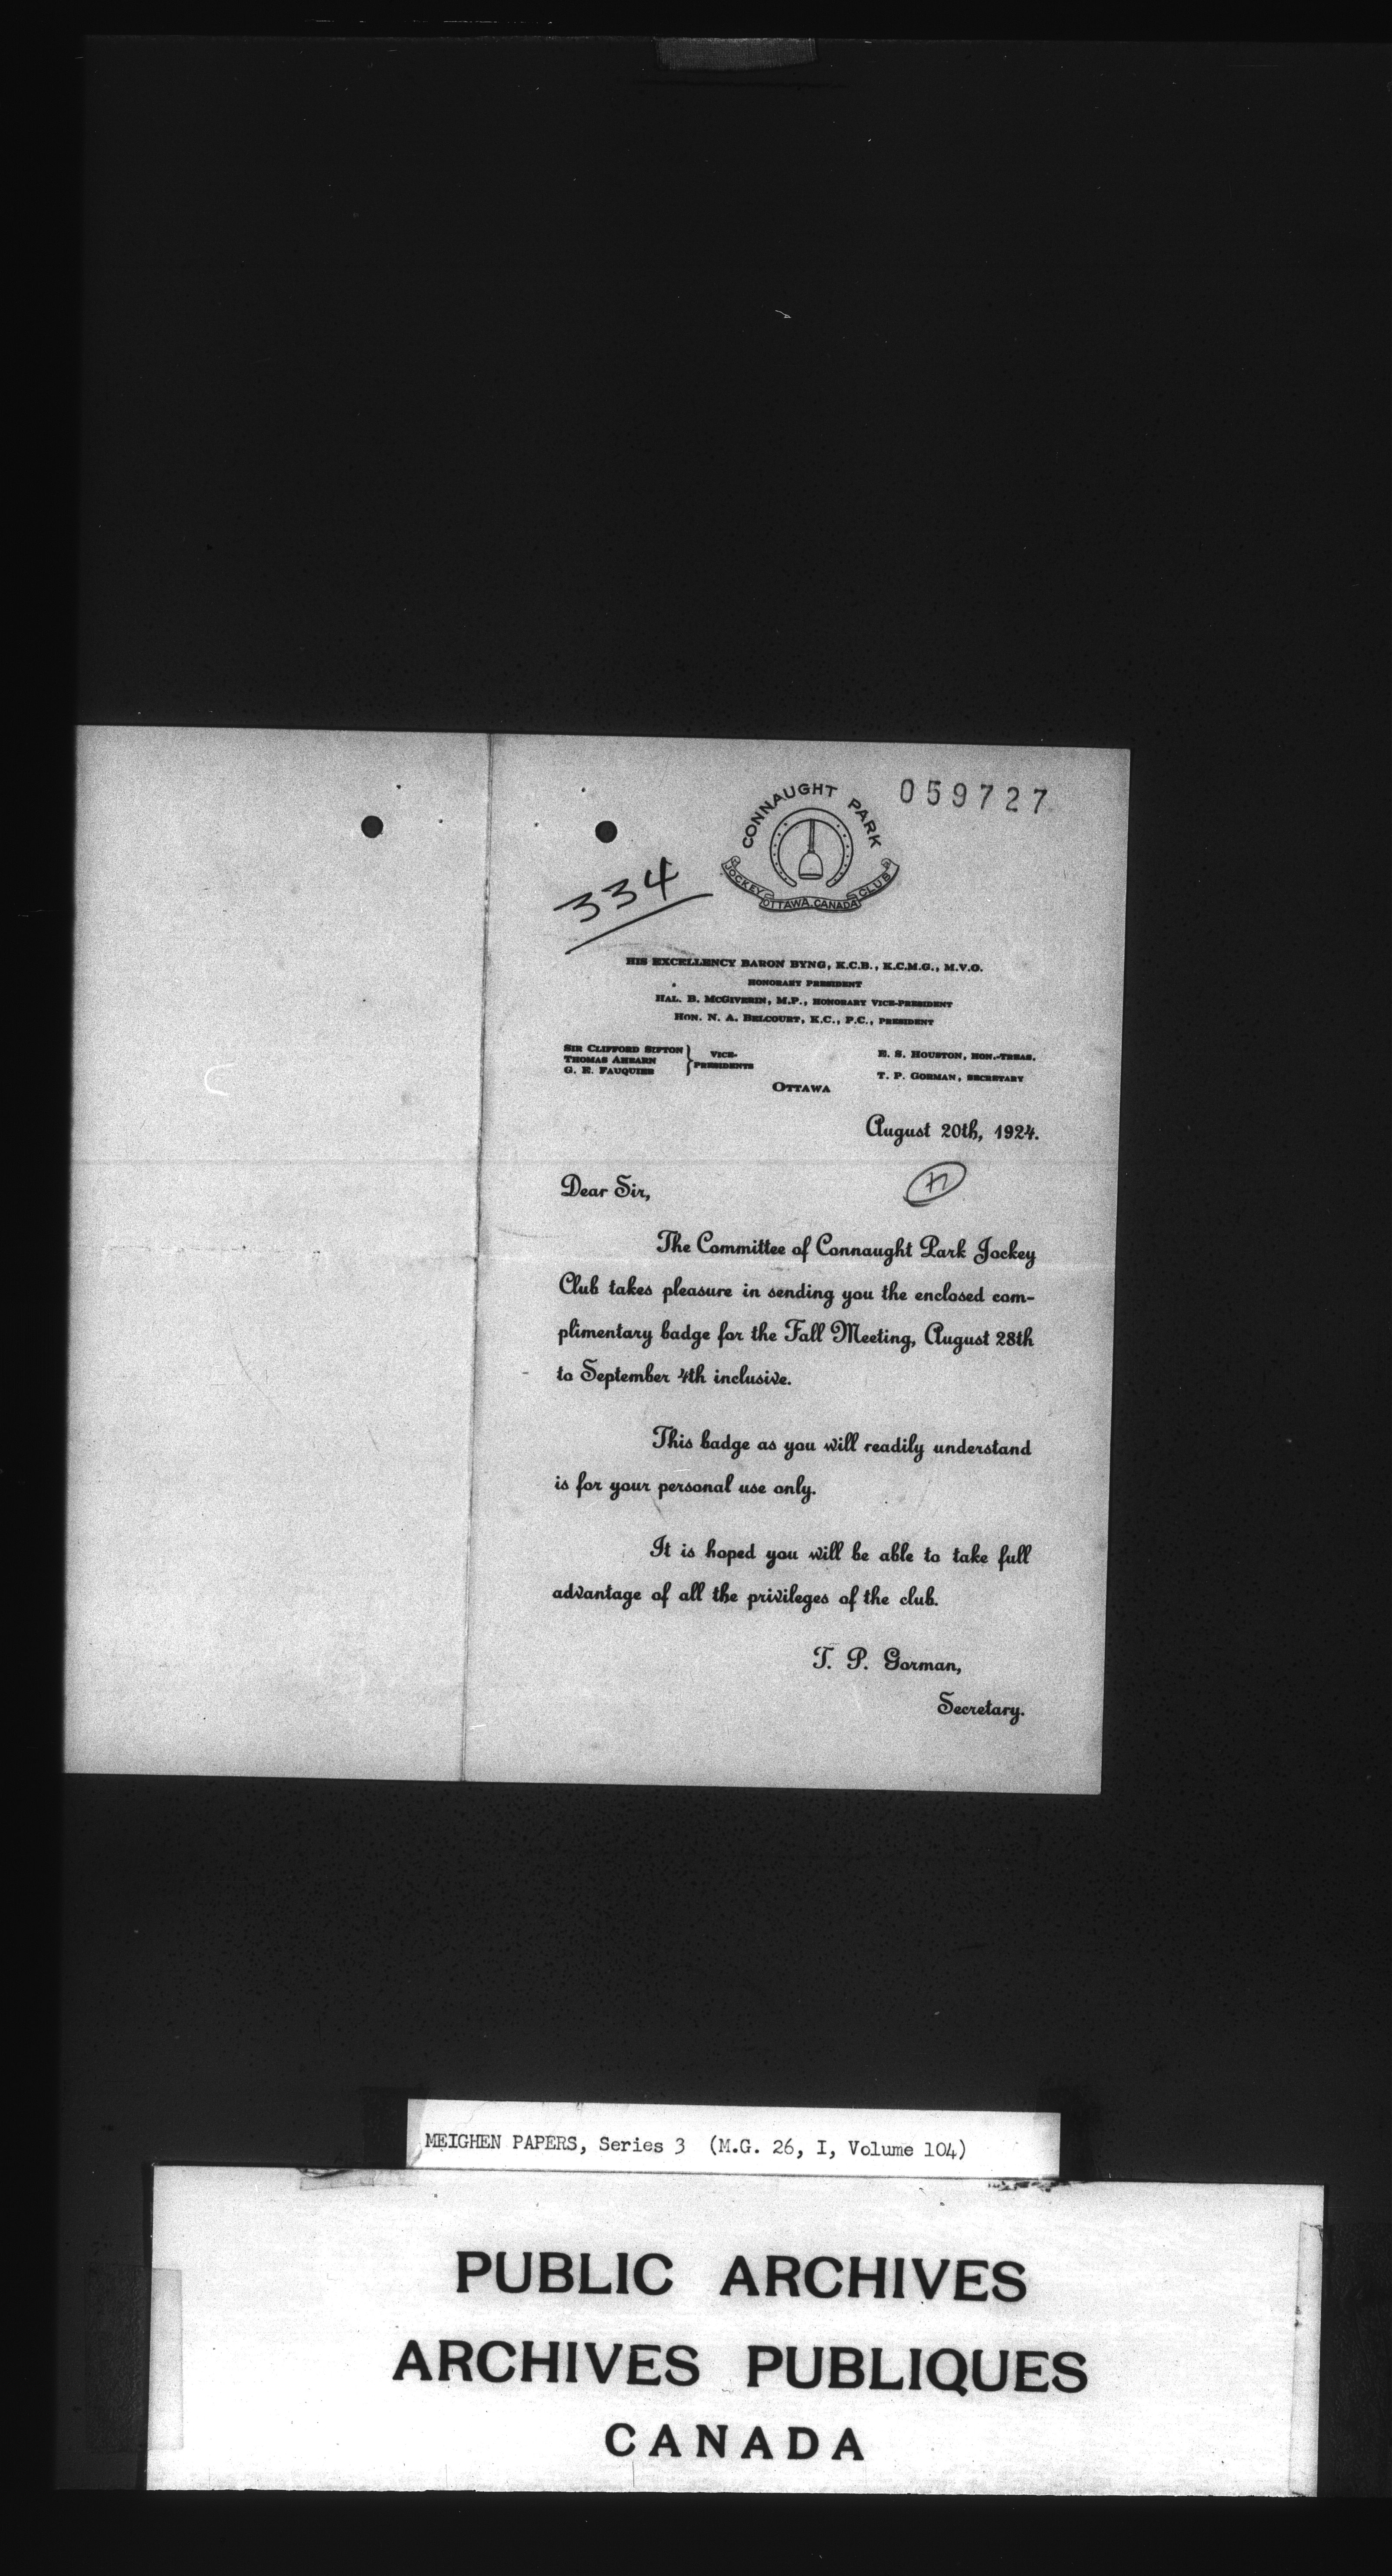 059727
CONNAUGHT PARK
JOCKEY CLUB
OTTAWA, CANADA
334
HIS EXCELLENCY BARON BYNG, K.C.B., K.C.M.G., M.V.O.
HONORARY PRESIDENT
HAL. B. MCGIVERIN, M.P., HONORARY VICE-PRESIDENT
HON. N. A. BELCOURT, K.C., P.C., PRESIDENT
SIR CLIFFORD SIFTON
THOMAS AHEARN
G. E. FAUQUIER
VICE-
PRESIDENTS
E. S. HOUSTON, HON.-TREAS.
T. P. GORMAN, SECRETARY
OTTAWA
August 20th, 1924.
Dear Sir,
The Committee of Connaught Park Jockey
Club takes pleasure in sending you the enclosed com-
plimentary badge for the Fall Meeting, August 28th
to September 4th inclusive.
This badge as you will readily understand
is for your personal use only.
It is hoped you will be able to take full
advantage of all the privileges of the club.
T. P. Gorman,
Secretary.
MEIGHEN PAPERS, Series 3 (M.G. 26, I, Volume 104)
PUBLIC ARCHIVES
ARCHIVES PUBLIQUES
CANADA